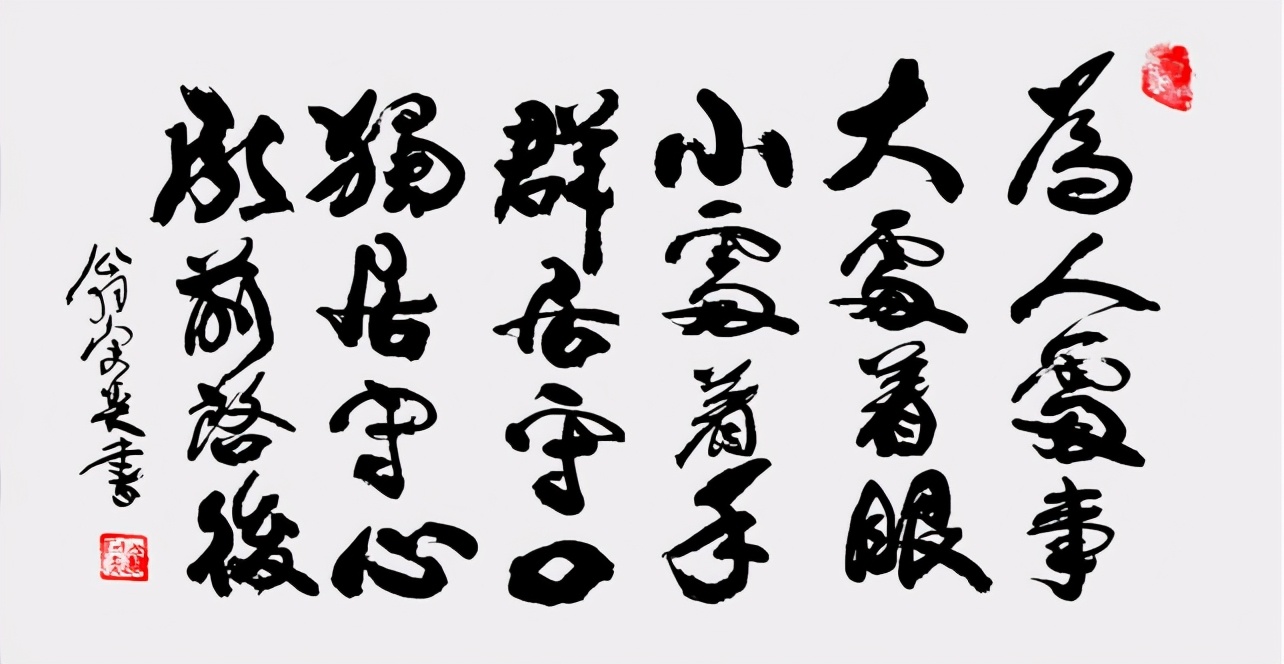 為人處事
大處着眼
小處着手
群居守口
獨居守心
承前啓後
翁榮炎書